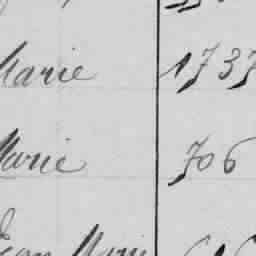 Marie 1737
Marie 706
Jean Marie